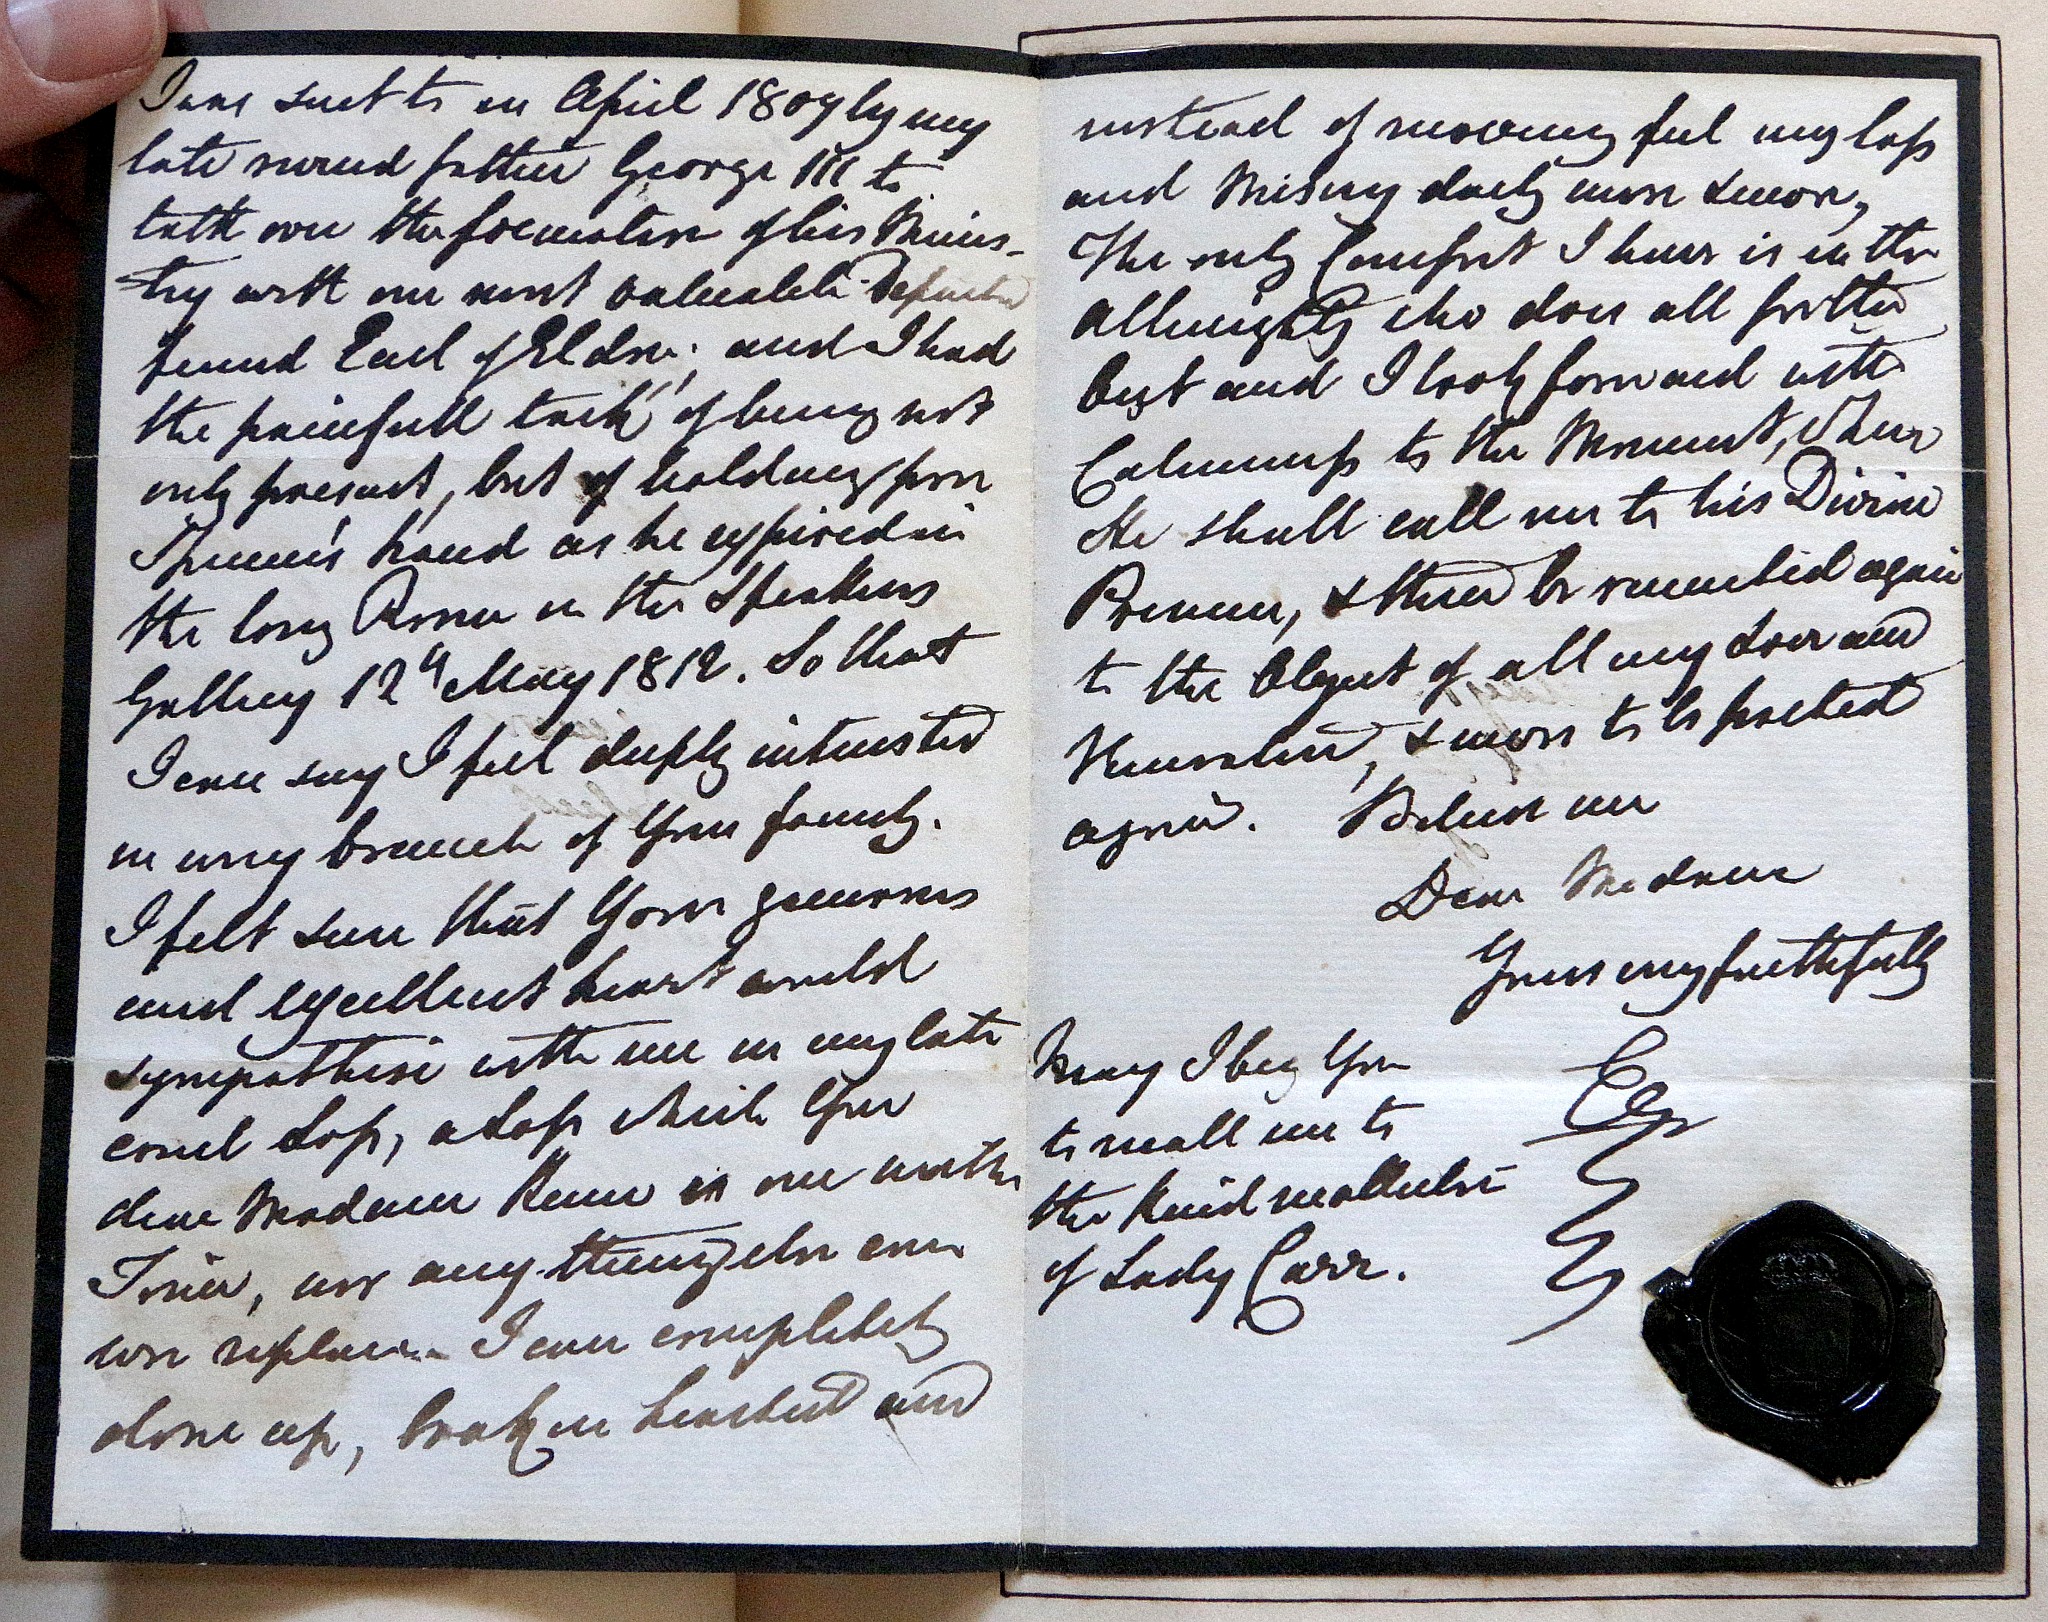 I was sent to in April 1807 by my
late revered father George III to
talk over the formation of his Minis-
try with our most valuable departed
friend Earl of Eldon; and I had
the painfull task of being not
only present, but of holding poor
hand as he expired in
the long Room in the Speakers
Gallery 12th May 1812. So that
I can say I feel deeply interested
in every branch of your family.
I felt sure that your generous
and excellent heart would
sympathise with me in my late
cruel Loss, a Loss which you
dear Madam know is one neither
Time, nor any thing else can
ever replace. I am completely
done up, broken hearted and
instead of recovering feel my loss
and Misery daily more & more,
The only Comfort I have is in the
Allmighty who does all for the
best and I look forward with
Calmness to the Moment, when
He shall call me to his Divine
Presence, & there be reunited again
to the Object of all my Love and
Veneration, & never to be parted
again. Believe me
Dear Madam
Yours very faithfully
May I beg you
to recall me to
the kind recollection
of Lady Carr.